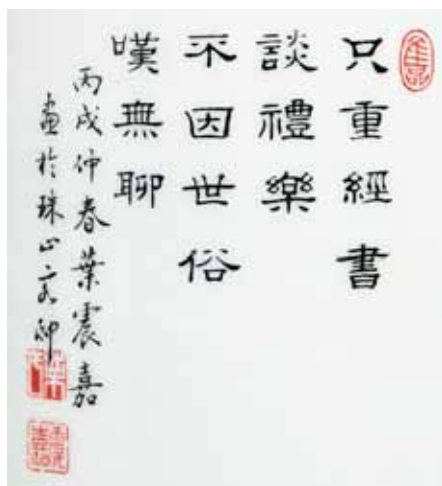 只重經書
談禮樂
不因世俗
嘆無聊
丙戌仲春葉震嘉
畫於珠山客邸